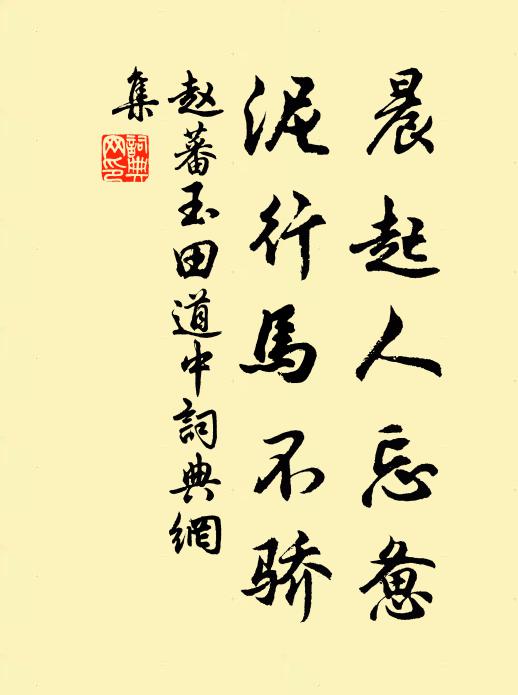 晨起人忘惫
泥行馬不骄
赵蕃玉田道中詞典網
集
詞典
网印